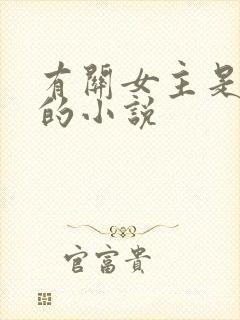 有關女主是
的小說
官富貴